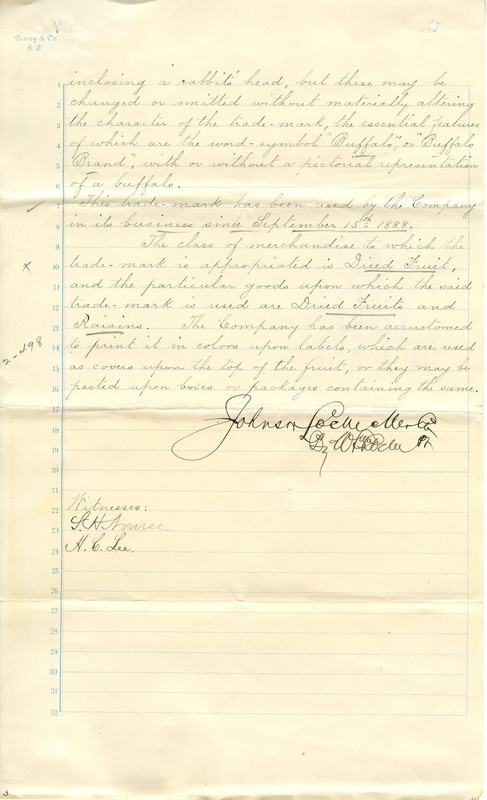 Dewey & Co.
S. F.
1 inclosing a rabbits' head, but these may be
2 changed or omitted without materially altering
3 the character of the trade-mark, the essential features
4 of which are the word-symbol "Buffalo", or "Buffalo
5 Brand", with or without a pictorial representation
6 of a buffalo.
7 This trade-mark has been used by the Company
8 in its business since September 15th 1888.
9 The class of merchandise to which the
x
10 trade-mark is appropriated is Dried Fruit,
11 and the particular goods upon which the said
12 trade-mark is used are Dried Fruits and
13 Raisins. The Company has been accustomed
2-498
14 to print it in colors upon labels, which are used
15 as covers upon the top of the fruit, or they may be
16 pasted upon boxes or packages containing the same.
17
18 Johnson Locke Mer Co
19 By
20
21
22 Witnesses:
23 S. H. Nourse.
24 H. C. Lee.
25
26
27
28
29
30
31
32
3